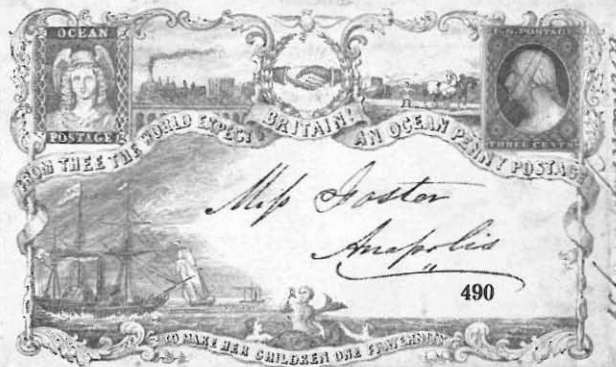 OCEAN
POSTAGE
U.S. POSTAGE
THREE CENTS
BRITAIN!
FROM THEE THE WORLD EXPECTS AN OCEAN PENNY POSTAGE
Miss Foster
Anapolis
490
TO MAKE HER CHILDREN ONE FRATERNITY